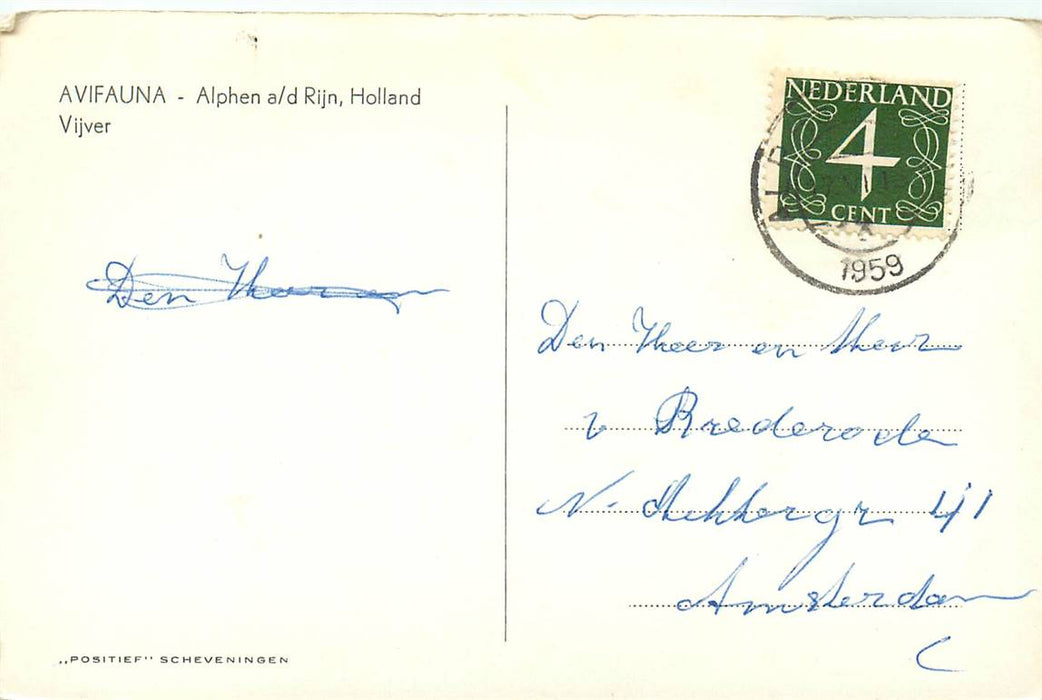 AVIFAUNA - Alphen a/d Rijn, Holland
Vijver
NEDERLAND
4
CENT
1959
Den
Den Heer en
v Brederode
41
Amsterdam
C
„POSITIEF" SCHEVENINGEN